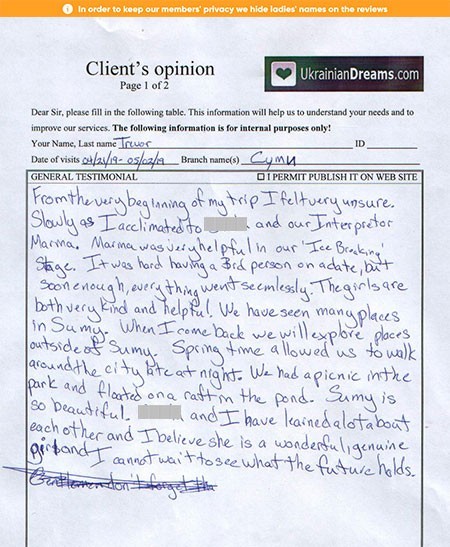 In order to keep our members' privacy we hide ladies' names on the reviews
Client's opinion
Page 1 of 2
UkrainianDreams.com
Dear Sir, please fill in the following table. This information will help us to understand your needs and to
improve our services. The following information is for internal purposes only!
Your Name, Last name Trevor ID
Date of visits 04/21/19 - 05/02/19 Branch name(s) Сумы
GENERAL TESTIMONIAL ☐ I PERMIT PUBLISH IT ON WEB SITE
From the very beginning of my trip I felt very unsure.
Slowly as I acclimated to and our Interpretor
Marina. Marina was very helpful in our 'Ice Breaking'
Stage. It was hard having a 3rd person on a date, but
soon enough, everything went seemlessly. The girls are
both very kind and helpful. We have seen many places
in Sumy. When I come back we will explore places
outside of Sumy. Spring time allowed us to walk
around the city late at night. We had a picnic in the
park and floated on a raft in the pond. Sumy is
so beautiful. and I have learned a lot about
each other and I believe she is a wonderful, genuine
girl and I cannot wait to see what the future holds.
Gentlemen don't forget